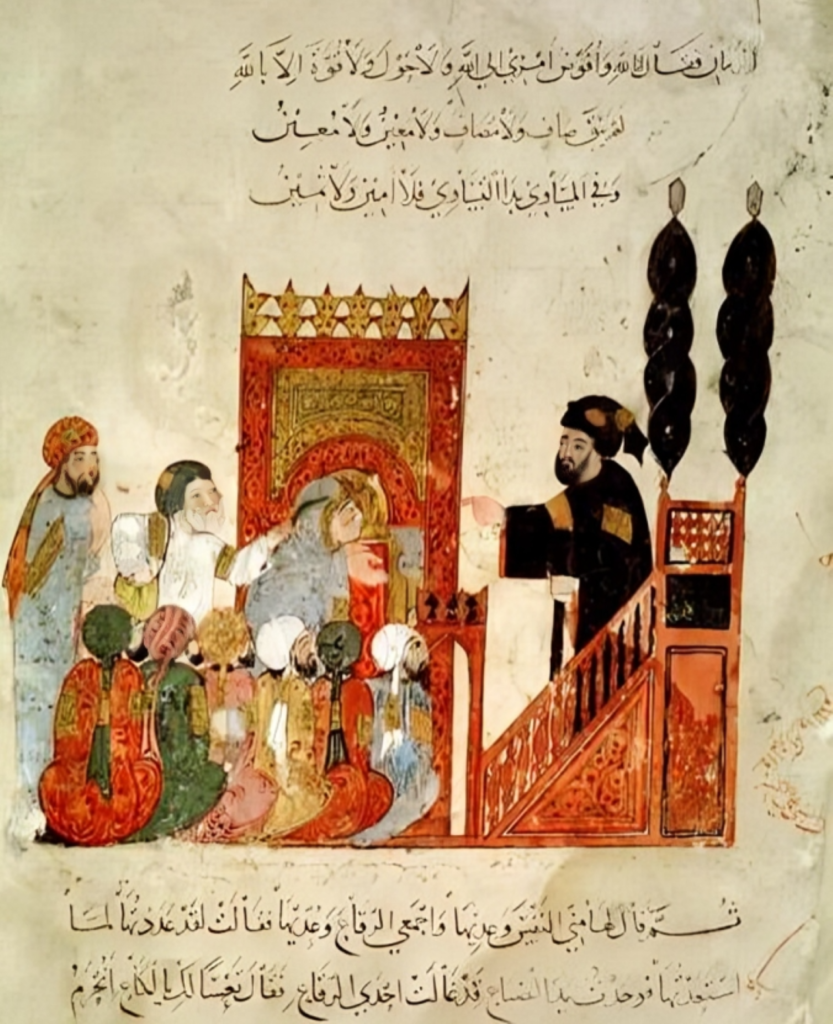 فقال انا لله وافوض امري الى الله ولا حول ولا قوة الا بالله
لم يبق صاف ولا مصاف ولا معين ولا معين
وفي المساوي بدا التساوي فلا امين ولا ثمين
ثم قال لها مني النفس وعديها واجمعي الرقاع وعديها فقالت لقد عددتها لما
استعدتها فوجدت يد الضياع قد غالت احدى الرقاع فقال تعسا لك يا لكاع انحرم